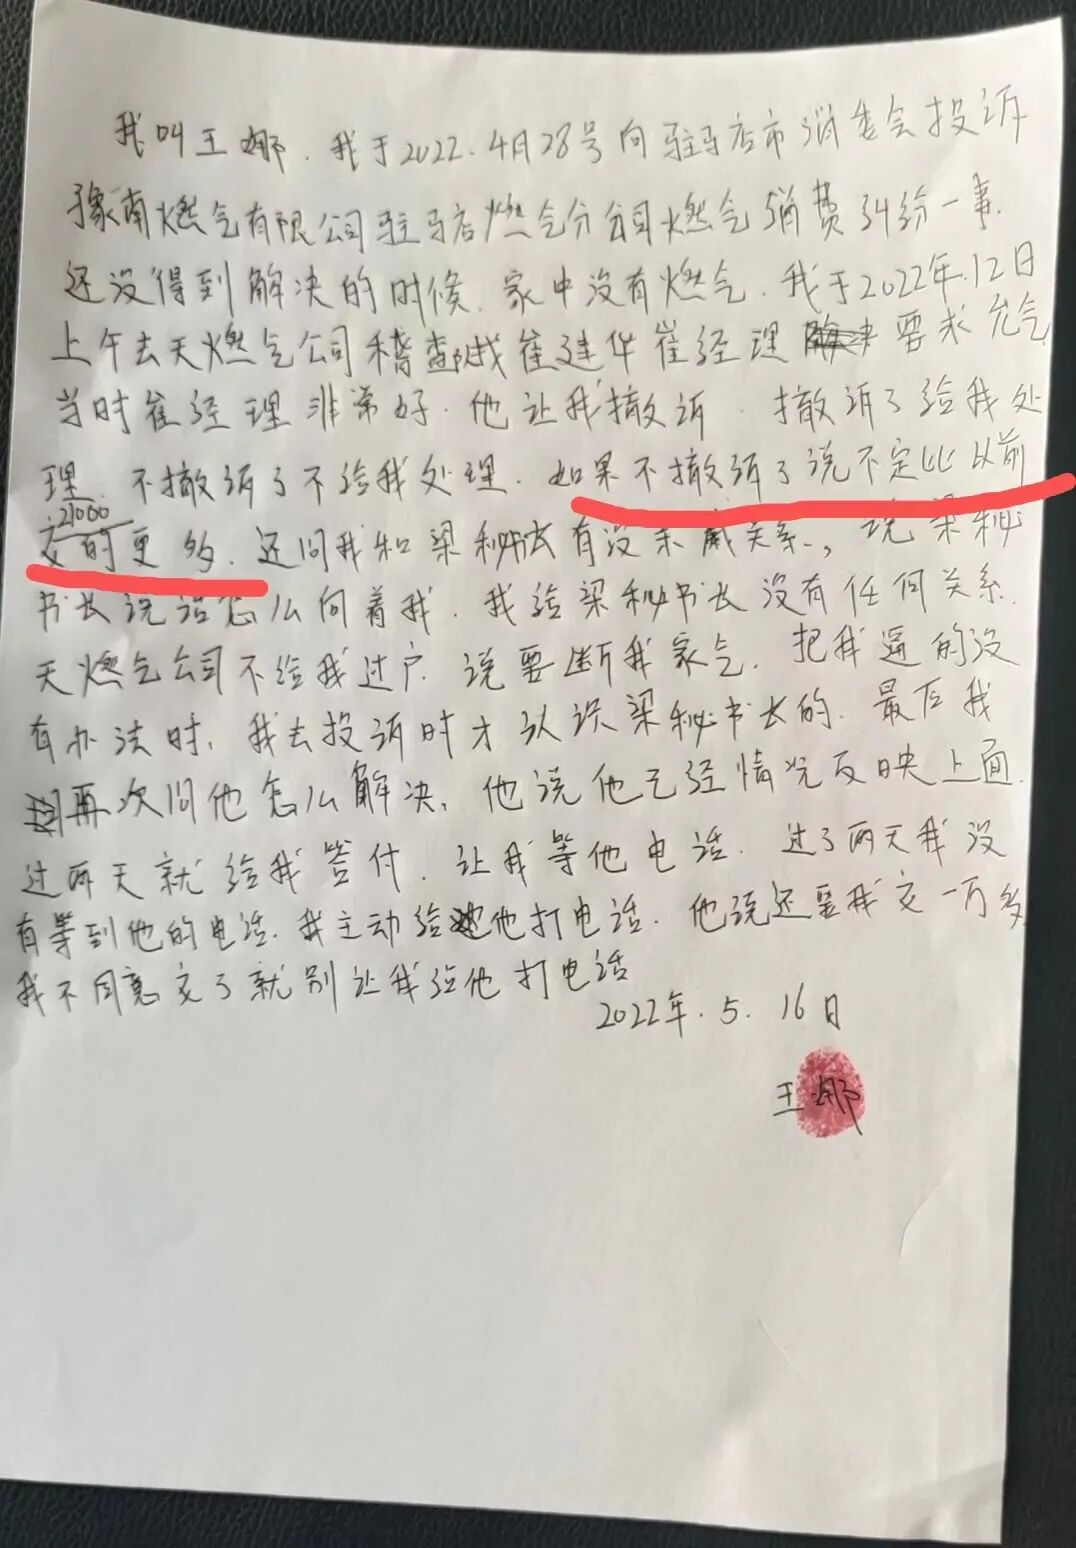 我叫王娜.我于2022.4月28号向驻马店市消委会投诉
豫南燃气有限公司驻马店燃气分公司燃气消费纠纷一事.
还没得到解决的时候.家中没有燃气.我于2022年.12日
上午去天燃气公司稽查队找崔建伟崔经理要求充气
当时崔经理非常好.他让我撤诉.撤诉了给我处
理.不撤诉了不给我处理.如果不撤诉了说不定比以前
21000
交的更多.还问我和梁秘书长有没亲戚关系.,说梁秘
书长说话怎么向着我.我给梁秘书长没有任何关系.
天燃气公司不给我过户.说要断我家气.把我逼的没
有办法时,我去投诉时才认识梁秘书长的.最后我
再次问他怎么解决,他说他已经情况反映上面.
过两天就给我答付.让我等他电话.过了两天我没
有等到他的电话.我主动给他打电话.他说还要我交一万多
我不同意交了就别让我给他打电话
2022年.5.16日
王娜